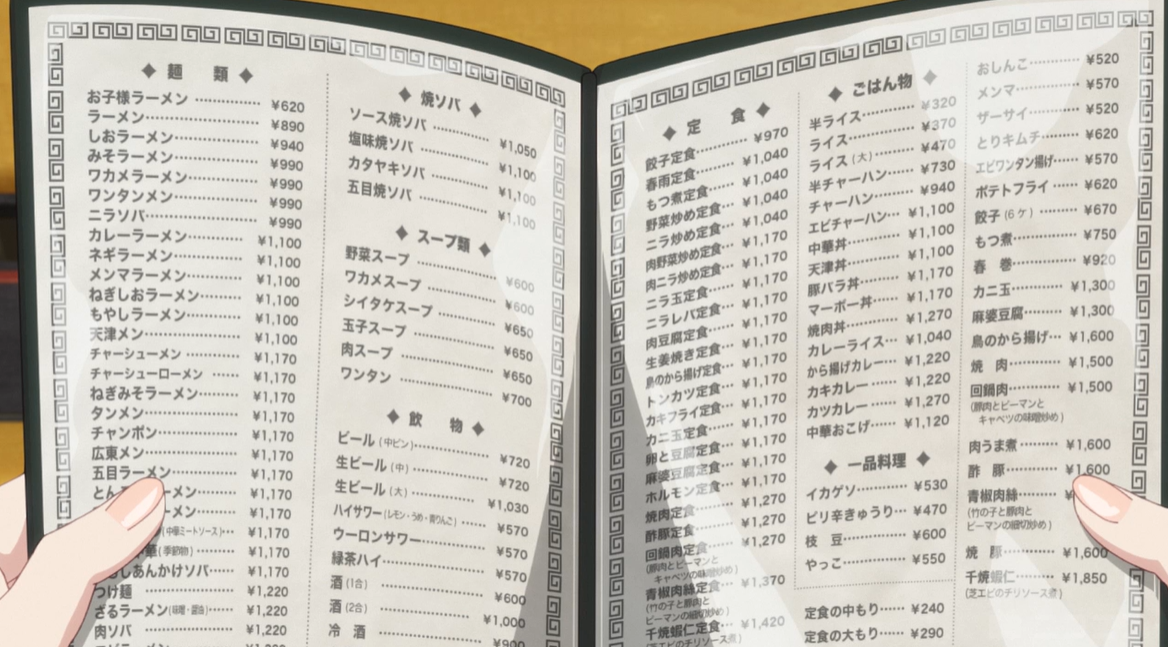 ◆ 麺 類 ◆
お子様ラーメン ………… ¥620
ラーメン………………… ¥890
しおラーメン…………… ¥940
みそラーメン…………… ¥990
ワカメラーメン………… ¥990
ワンタンメン…………… ¥990
ニラソバ ……………… ¥990
カレーラーメン………… ¥1,100
ネギラーメン…………… ¥1,100
メンマラーメン………… ¥1,100
ねぎしおラーメン……… ¥1,100
もやしラーメン………… ¥1,100
天津メン ……………… ¥1,100
チャーシューメン ……… ¥1,170
チャーシューローメン … ¥1,170
ねぎみそラーメン……… ¥1,170
タンメン ……………… ¥1,170
チャンポン …………… ¥1,170
広東メン ……………… ¥1,170
五目ラーメン…………… ¥1,170
とん メン……… ¥1,170
ーメン……… ¥1,170
(中華ミートソース)… ¥1,170
華(季節物)……… ¥1,170
しあんかけソバ…… ¥1,170
つけ麺 ……………… ¥1,220
ざるラーメン(味噌・醤油) ¥1,220
肉ソバ ……………… ¥1,220
◆ 焼ソバ ◆
ソース焼ソバ ………… ¥1,050
塩味焼ソバ …………… ¥1,100
カタヤキソバ ………… ¥1,100
五目焼ソバ …………… ¥1,100
◆ スープ類 ◆
野菜スープ …………… ¥600
ワカメスープ ………… ¥600
シイタケスープ ……… ¥650
玉子スープ …………… ¥650
肉スープ ……………… ¥650
ワンタン ……………… ¥700
◆ 飲 物 ◆
ビール(中ビン)……… ¥720
生ビール(中)………… ¥720
生ビール(大)………… ¥1,030
ハイサワー(レモン・うめ・青りんご)… ¥570
ウーロンサワー……… ¥570
緑茶ハイ……………… ¥570
酒(1合)……………… ¥600
酒(2合)……………… ¥1,000
冷 酒 ……………… ¥900
◆ 定 食 ◆
餃子定食………… ¥970
春雨定食………… ¥1,040
もつ煮定食……… ¥1,040
野菜炒め定食…… ¥1,040
ニラ炒め定食…… ¥1,040
肉野菜炒め定食… ¥1,170
肉ニラ炒め定食… ¥1,170
ニラ玉定食……… ¥1,170
ニラレバ定食…… ¥1,170
肉豆腐定食……… ¥1,170
生姜焼き定食…… ¥1,170
鳥のから揚げ定食… ¥1,170
トンカツ定食…… ¥1,170
カキフライ定食… ¥1,170
カニ玉定食……… ¥1,170
卵と豆腐定食…… ¥1,170
麻婆豆腐定食…… ¥1,170
ホルモン定食…… ¥1,170
焼肉定食………… ¥1,270
酢豚定食………… ¥1,270
回鍋肉定食……… ¥1,270
(豚肉とピーマンと
キャベツの味噌炒め)
青椒肉絲定食…… ¥1,370
(竹の子と豚肉と
ピーマンの細切炒め)
千焼蝦仁定食… ¥1,420
(芝エビのチリソース煮)
◆ ごはん物 ◆
半ライス………… ¥320
ライス…………… ¥370
ライス(大)……… ¥470
半チャーハン…… ¥730
チャーハン……… ¥940
エビチャーハン… ¥1,100
中華丼…………… ¥1,100
天津丼…………… ¥1,100
豚バラ丼………… ¥1,170
マーボー丼……… ¥1,170
焼肉丼…………… ¥1,270
カレーライス…… ¥1,040
から揚げカレー… ¥1,220
カキカレー ……… ¥1,220
カツカレー ……… ¥1,270
中華おこげ……… ¥1,120
◆ 一品料理 ◆
イカゲソ………… ¥530
ピリ辛きゅうり… ¥470
枝 豆 ………… ¥600
やっこ ………… ¥550
定食の中もり…… ¥240
定食の大もり…… ¥290
おしんこ………… ¥520
メンマ…………… ¥570
ザーサイ………… ¥520
とりキムチ……… ¥620
エビワンタン揚げ…… ¥570
ポテトフライ …… ¥620
餃子(6ケ)……… ¥670
もつ煮…………… ¥750
春 巻 ………… ¥920
カニ玉…………… ¥1,300
麻婆豆腐………… ¥1,300
鳥のから揚げ… ¥1,600
焼 肉 ………… ¥1,500
回鍋肉…………… ¥1,500
(豚肉とピーマンと
キャベツの味噌炒め)
肉うま煮………… ¥1,600
酢 豚 ………… ¥1,600
青椒肉絲…… ¥
(竹の子と豚肉と
ピーマンの細切炒め)
焼 豚 ………… ¥1,600
千焼蝦仁……… ¥1,850
(芝エビのチリソース煮)